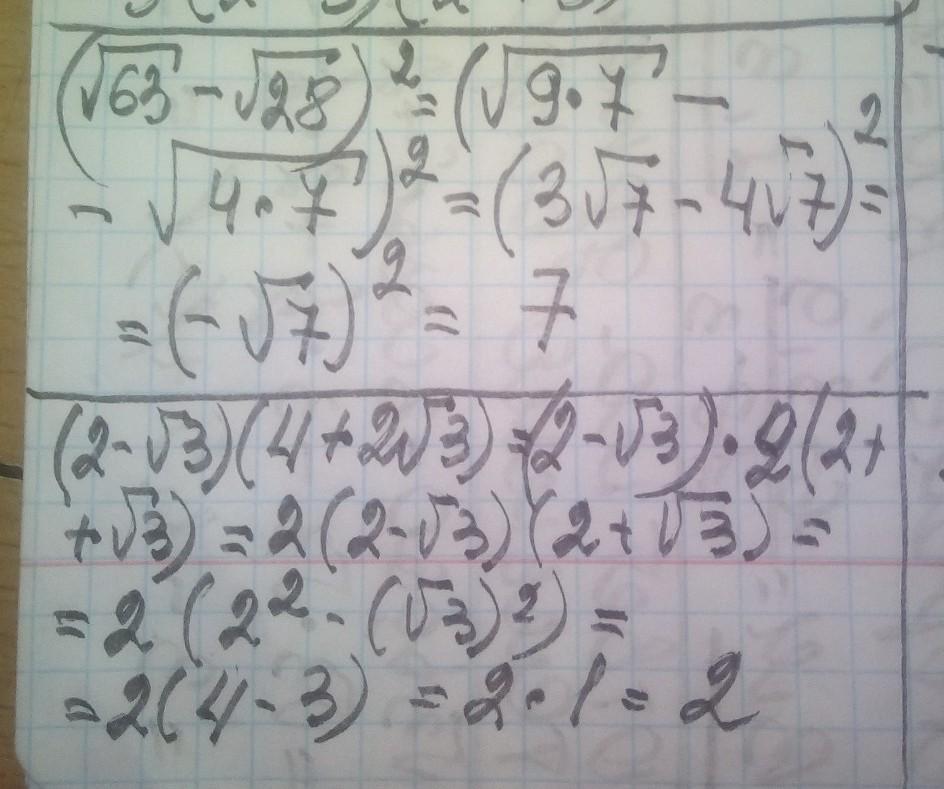 (√63 - √28)² = (√9·7 -
- √4·7)² = (3√7 - 4√7)² =
= (-√7)² = 7
(2-√3)(4+2√3) = (2-√3)·2(2+
+√3) = 2(2-√3)(2+√3) =
= 2(2² - (√3)²) =
= 2(4-3) = 2·1 = 2